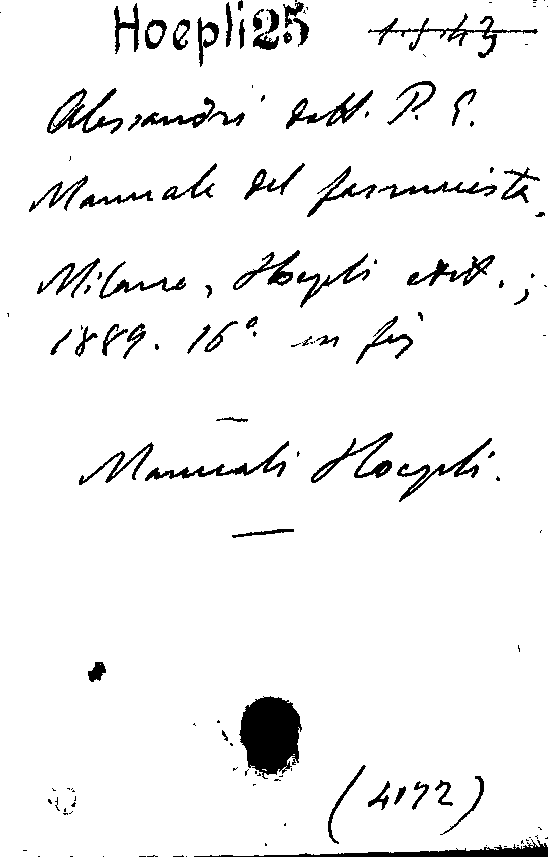 Hoepli 25 1.J.43
Alessandri dott. P. E.
Manuale del farmacista.
Milano, Hoepli edit.;
1889. 16° con fig
Manuali Hoepli.
(4172)